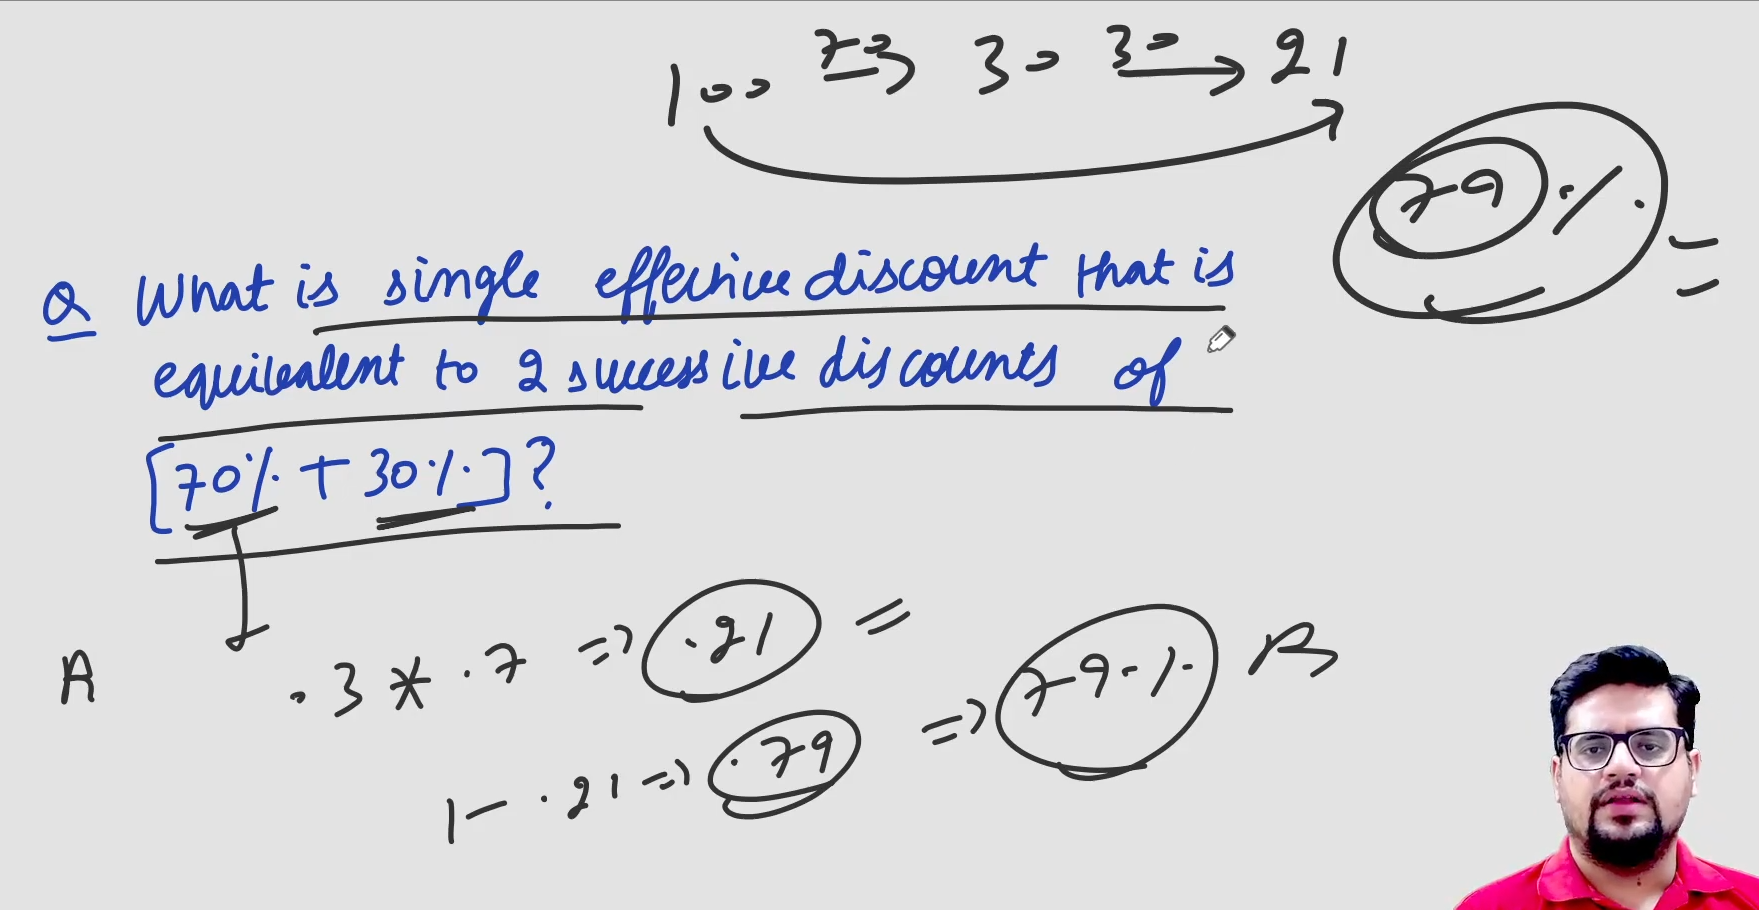 100 70 30 30 21
79 %
Q What is single effective discount that is
equivalent to 2 successive discounts of
[70% + 30%]?
A .3 * .7 => .21 =
1 - .21 => .79 => 79%